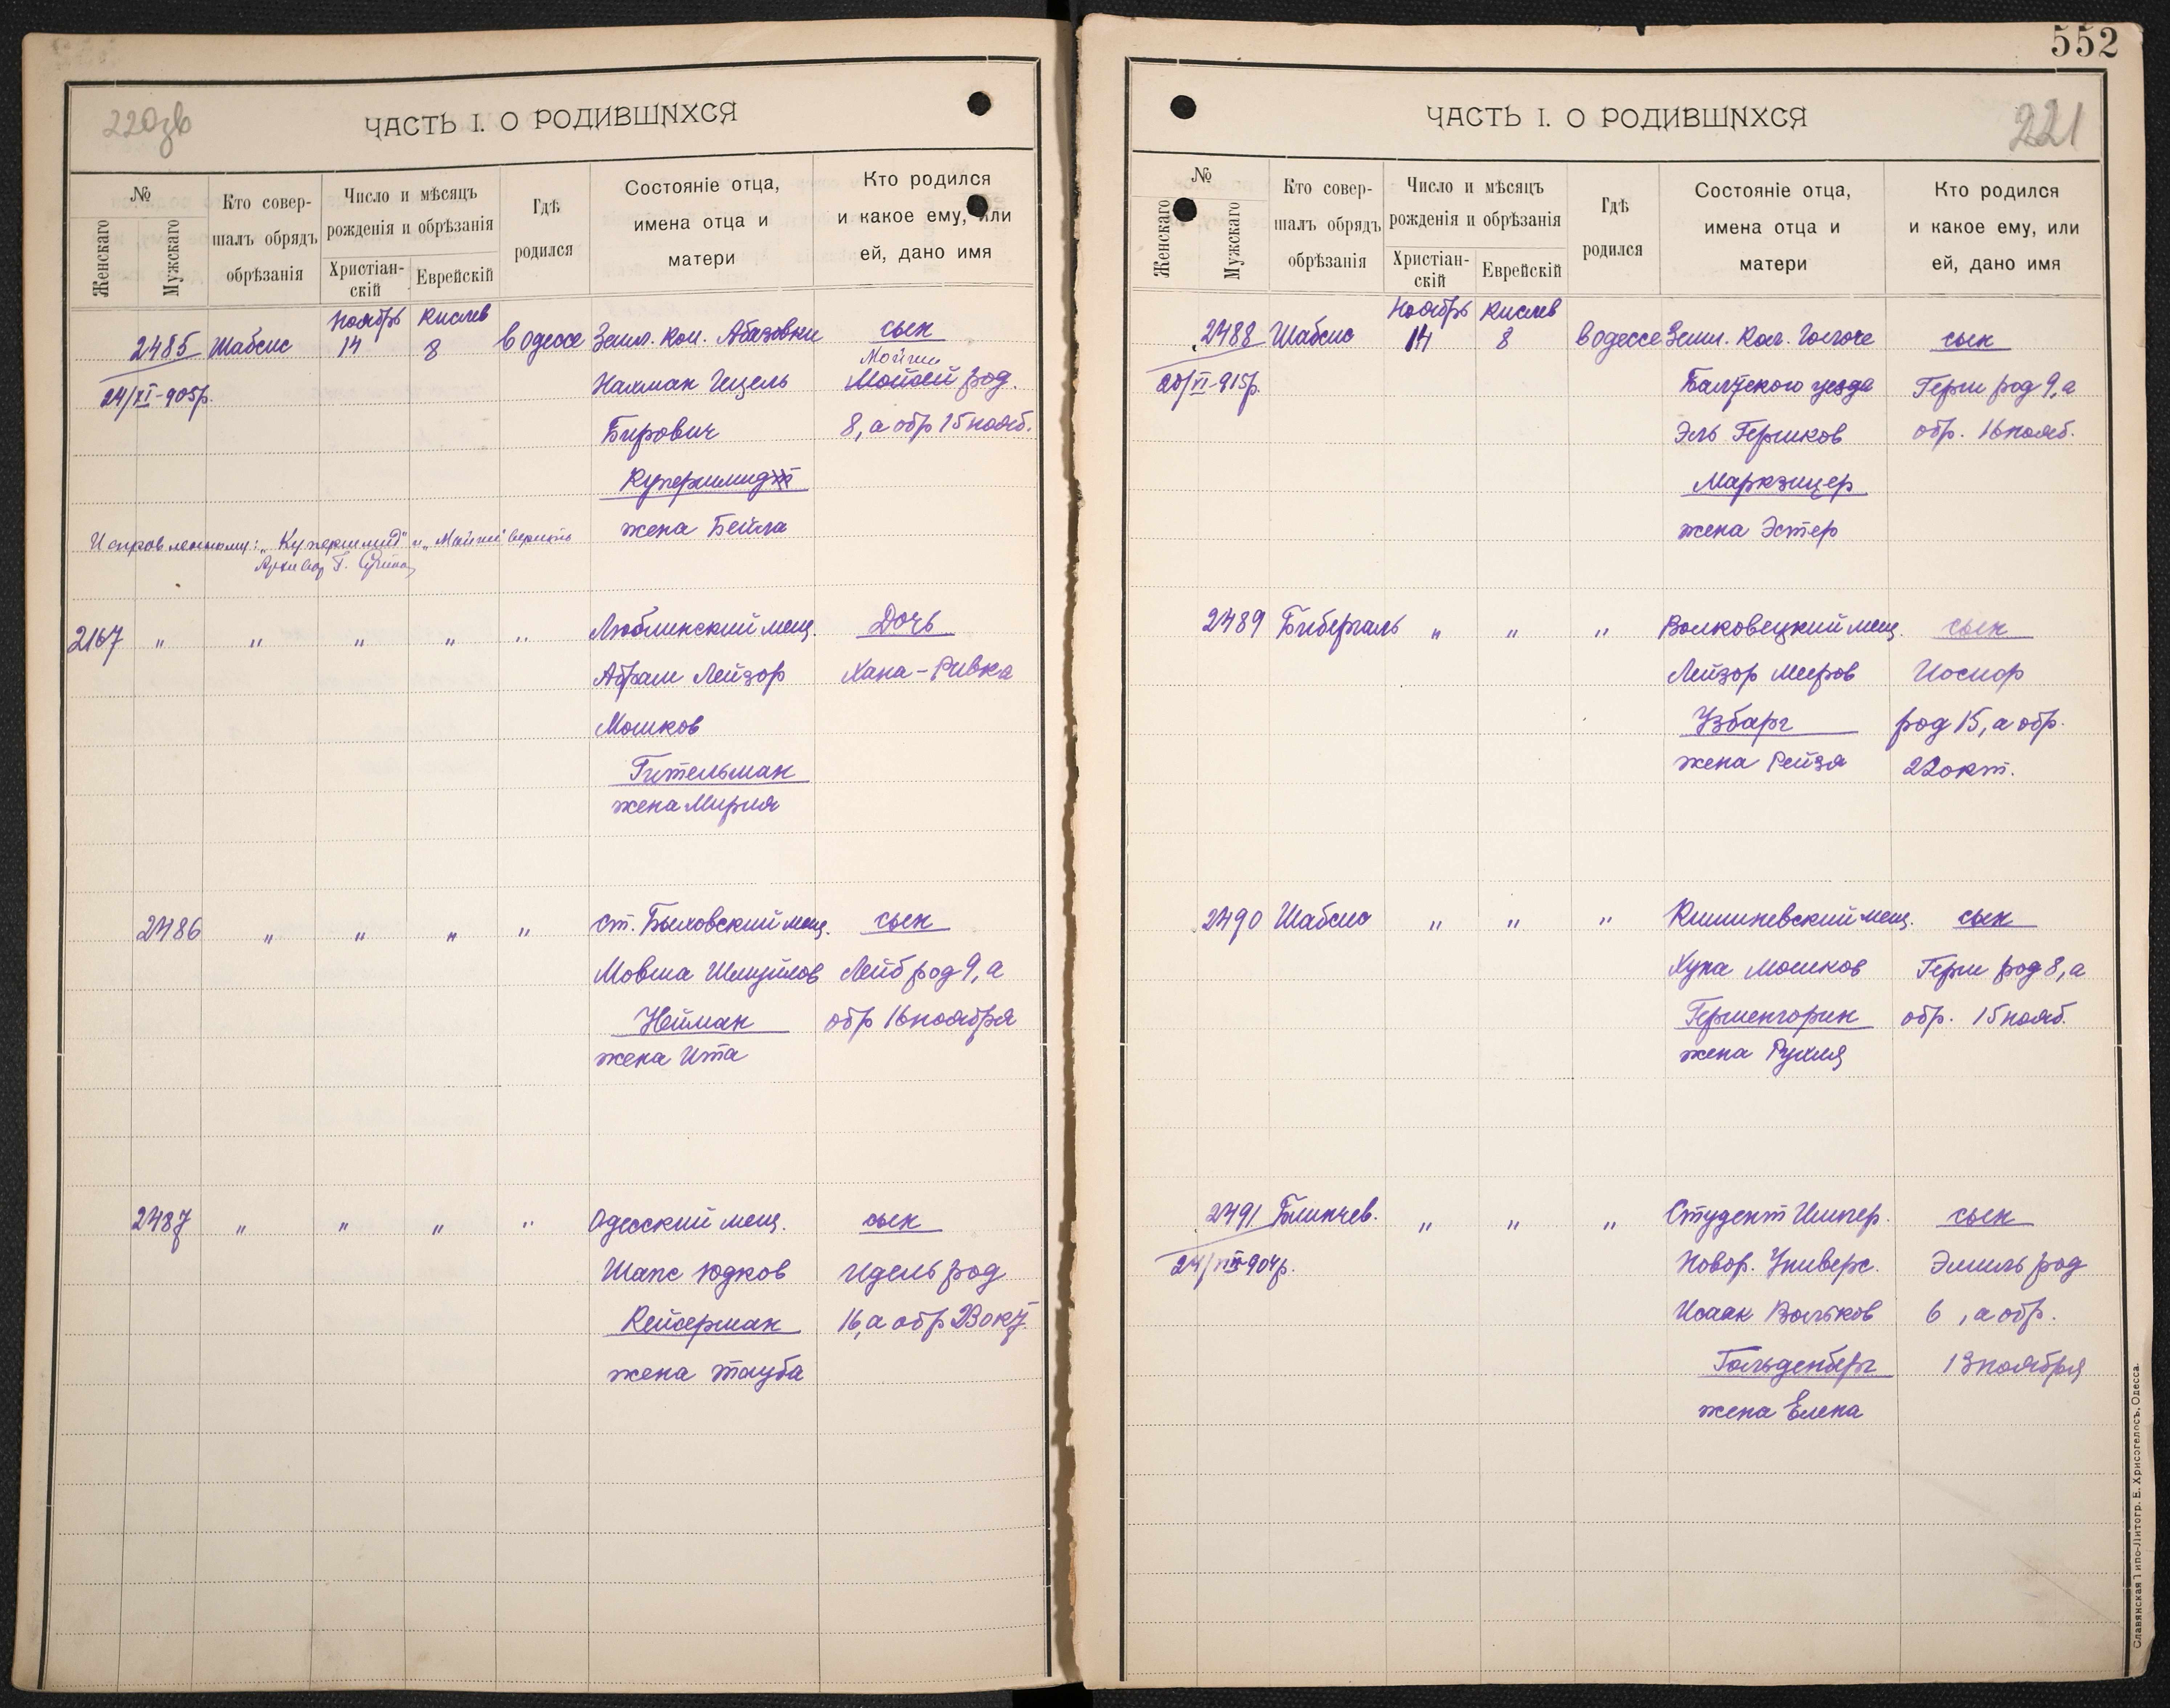 220зв
ЧАСТЬ I. О РОДИВШИХСЯ
№
Женскаго
Мужскаго
Кто совер-
шалъ обрядъ
обрѣзанія
Число и мѣсяцъ
рожденія и обрѣзанія
Христіан-
скій
Еврейскій
Гдѣ
родился
Состояніе отца,
имена отца и
матери
Кто родился
и какое ему, или
ей, дано имя
Ноябрь Кислев
2485 Шабсис 14 8 в Одессе Земл. Кол. Абазовки сын
Мойше
24/XI-905р. Нахман Гецель Мойсей род.
Бирович 8, а обр 15 нояб.
Купершмидт
жена Бейла
Исправленному: „Купершмид" и „Мойше" верить
2167 „ „ „ „ „ Люблинский мещ. Дочь
Абрам Лейзор Хана-Ривка
Мошков
Гительман
жена Мирия
2486 „ „ „ „ Ст. Быховский мещ. сын
Мовша Шмуйлов Лейб род 9, а
Нейман обр 16 ноября
жена Ита
2487 „ „ „ „ Одесский мещ. сын
Шапс Юдков Идель род
Кейсерман 16, а обр 23 окт.
жена Тауба
552
221
ЧАСТЬ I. О РОДИВШИХСЯ
№
Женскаго
Мужскаго
Кто совер-
шалъ обрядъ
обрѣзанія
Число и мѣсяцъ
рожденія и обрѣзанія
Христіан-
скій
Еврейскій
Гдѣ
родился
Состояніе отца,
имена отца и
матери
Кто родился
и какое ему, или
ей, дано имя
Ноябрь Кислев
2488 Шабсис 14 8 в Одессе Земл. Кол. сын
20/VI-915р. Балтского уезда Герш род 9, а
Эль Гершков обр. 16 нояб.
Маркзицер
жена Эстер
2489 Бибергаль „ „ „ Волковецкий мещ. сын
Лейзор Мееров Иосиф
Узбарг род 15, а обр.
жена Рейзя 22 окт.
2490 Шабсис „ „ „ Кишиневский мещ. сын
Хуна Мошков Герш род 8, а
Гершенгорин обр. 15 нояб.
жена Рухля
2491 „ „ „ Студент Импер. сын
Новор. Универс. Эмиль род
Исаак Вольков 6, а обр.
Гольденберг 13 ноября
жена Елена
Славянская Типо-Литогр. Е. Хрисогелосъ, Одесса.